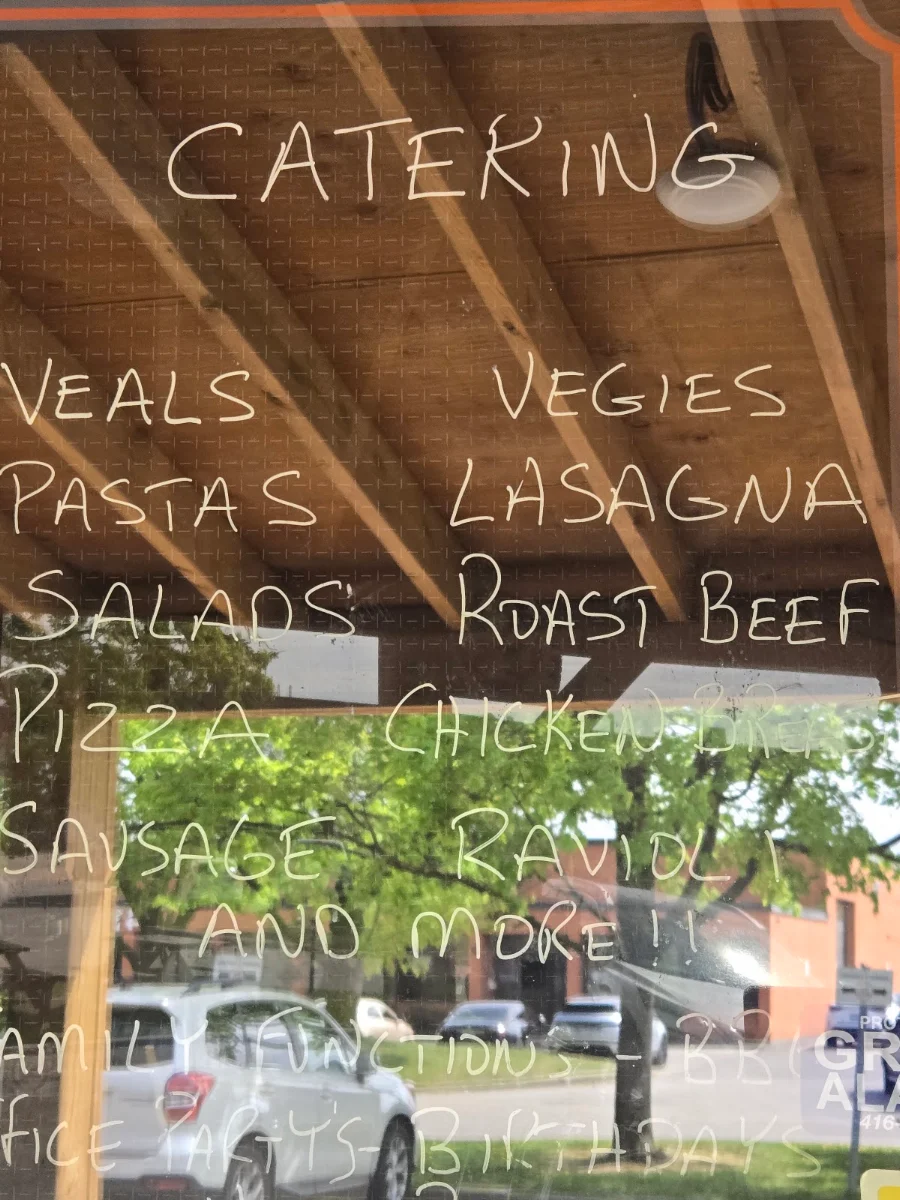 CATERING
VEALS VEGIES
PASTAS LASAGNA
SALADS ROAST BEEF
PIZZA CHICKEN BREAS
SAUSAGE RAVIOLI
AND MORE!!
AMILY FUNCTIONS - BB
FFICE PARTY'S - BIRTHDAYS
PRO
GR
ALA
416-